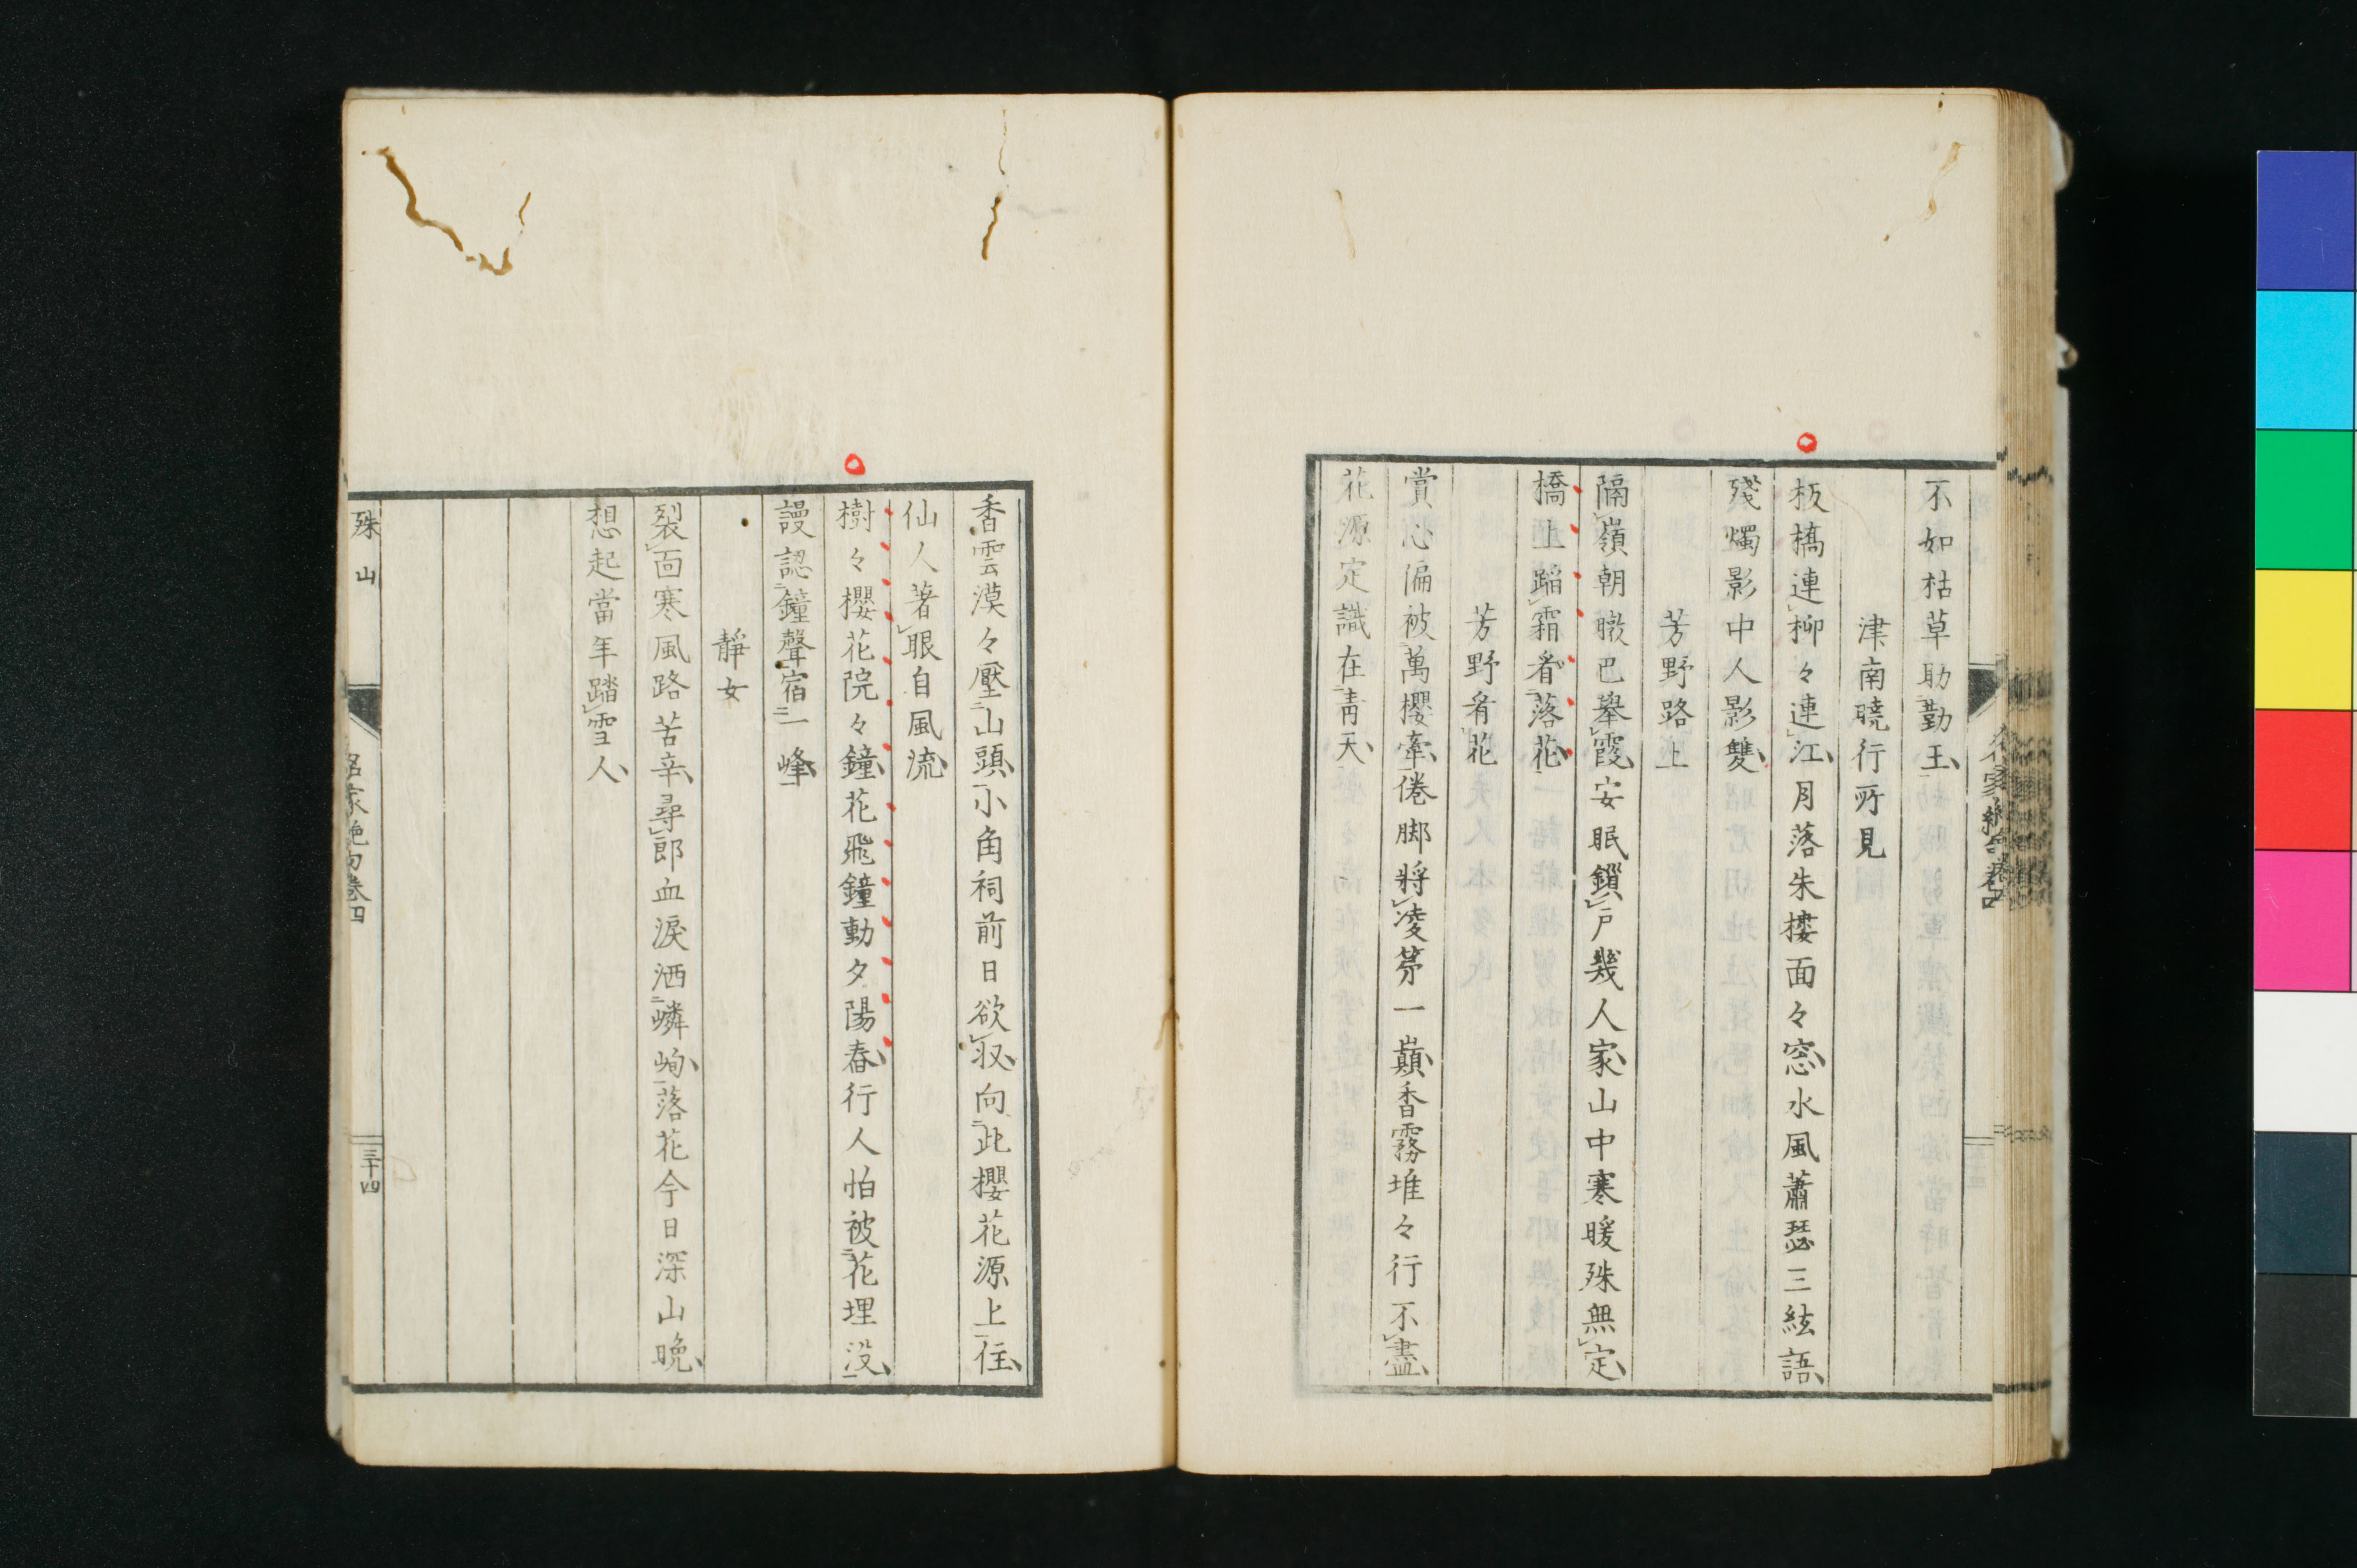 不如枯草助勤王
津南曉行所見
板橋連柳々連江月落朱樓面々窓水風蕭瑟三絃語
殘燭影中人影雙
芳野路上
隔嶺朝暾已擧霞安眠鎖戸幾人家山中寒暖殊無定
橋上蹈霜看落花
芳野看花
賞心偏被萬櫻牽倦脚將凌第一巓香霧堆々行不盡
花源定識在靑天
香雲漠々壓山頭小角祠前日欲収向此櫻花源上住
仙人著眼自風流
樹々櫻花院々鐘花飛鐘動夕陽舂行人怕被花埋没
謾認鐘聲宿一峰
靜女
裂面寒風路苦辛尋郎血淚洒嶙峋落花今日深山晩
想起當年踏雪人
殊山
名家絶句卷四
三十四